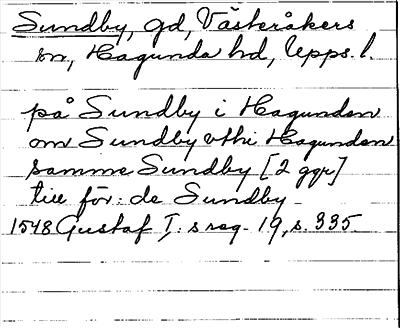 Sundby, gd, Västeråkers
sn, Hagunda hd, Upps. l.
på Sundby i Hagunden
om Sundby vthi Hagunden
samme Sundby [2 ggr]
till för: de Sundby -
1548 Gustaf I:s reg. 19, s. 335.